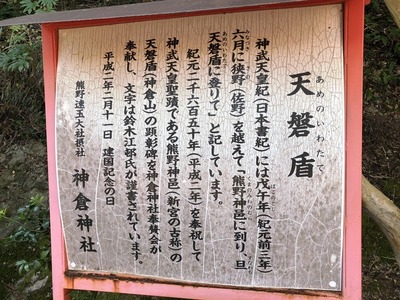 天磐盾
あめのいわたて
神武天皇紀（日本書紀）には戊午年（紀元前三年）
六月に狭野（佐野）を越えて「熊野神邑に到り、旦
天磐盾に登りて」と記しています。
紀元二千六百五十年（平成二年）を奉祝して
神武天皇聖蹟である熊野神邑（新宮の古称）の
天磐盾（神倉山）の顕彰碑を神倉神社奉賛会が
奉献し、文字は鈴木江邨氏が謹書されています。
平成二年二月十一日　建国記念の日
熊野速玉大社摂社　神倉神社